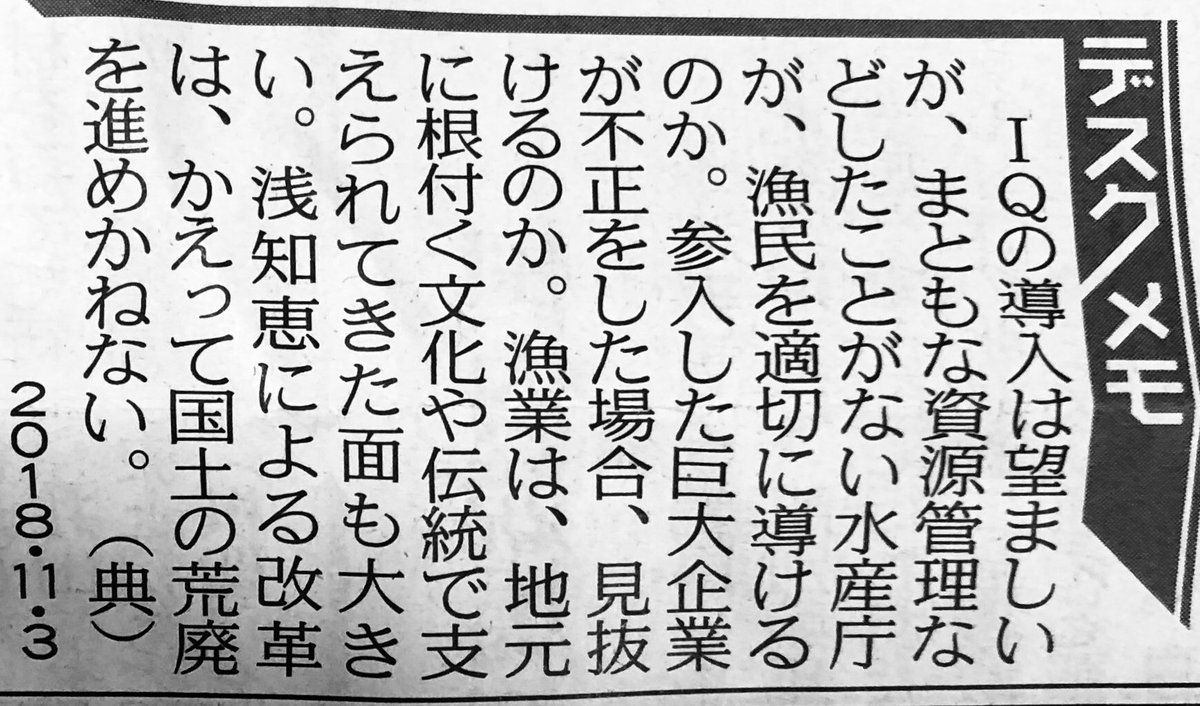 デスクメモ
IQの導入は望ましい
が、まともな資源管理な
どしたことがない水産庁
が、漁民を適切に導ける
のか。参入した巨大企業
が不正をした場合、見抜
けるのか。漁業は、地元
に根付く文化や伝統で支
えられてきた面も大き
い。浅知恵による改革
は、かえって国土の荒廃
を進めかねない。（典）
2018・11・3